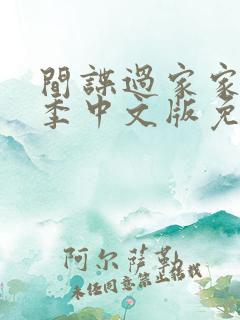 間諜過家家
季中文版免
阿尔萨勒
未经同意禁止转载